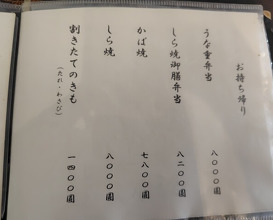 お持ち帰り
うな重弁当 八〇〇〇圓
しら焼御膳弁当 八二〇〇圓
かば焼 七八〇〇圓
しら焼 八〇〇〇圓
割きたてのきも 一四〇〇圓
(たれ・わさび)